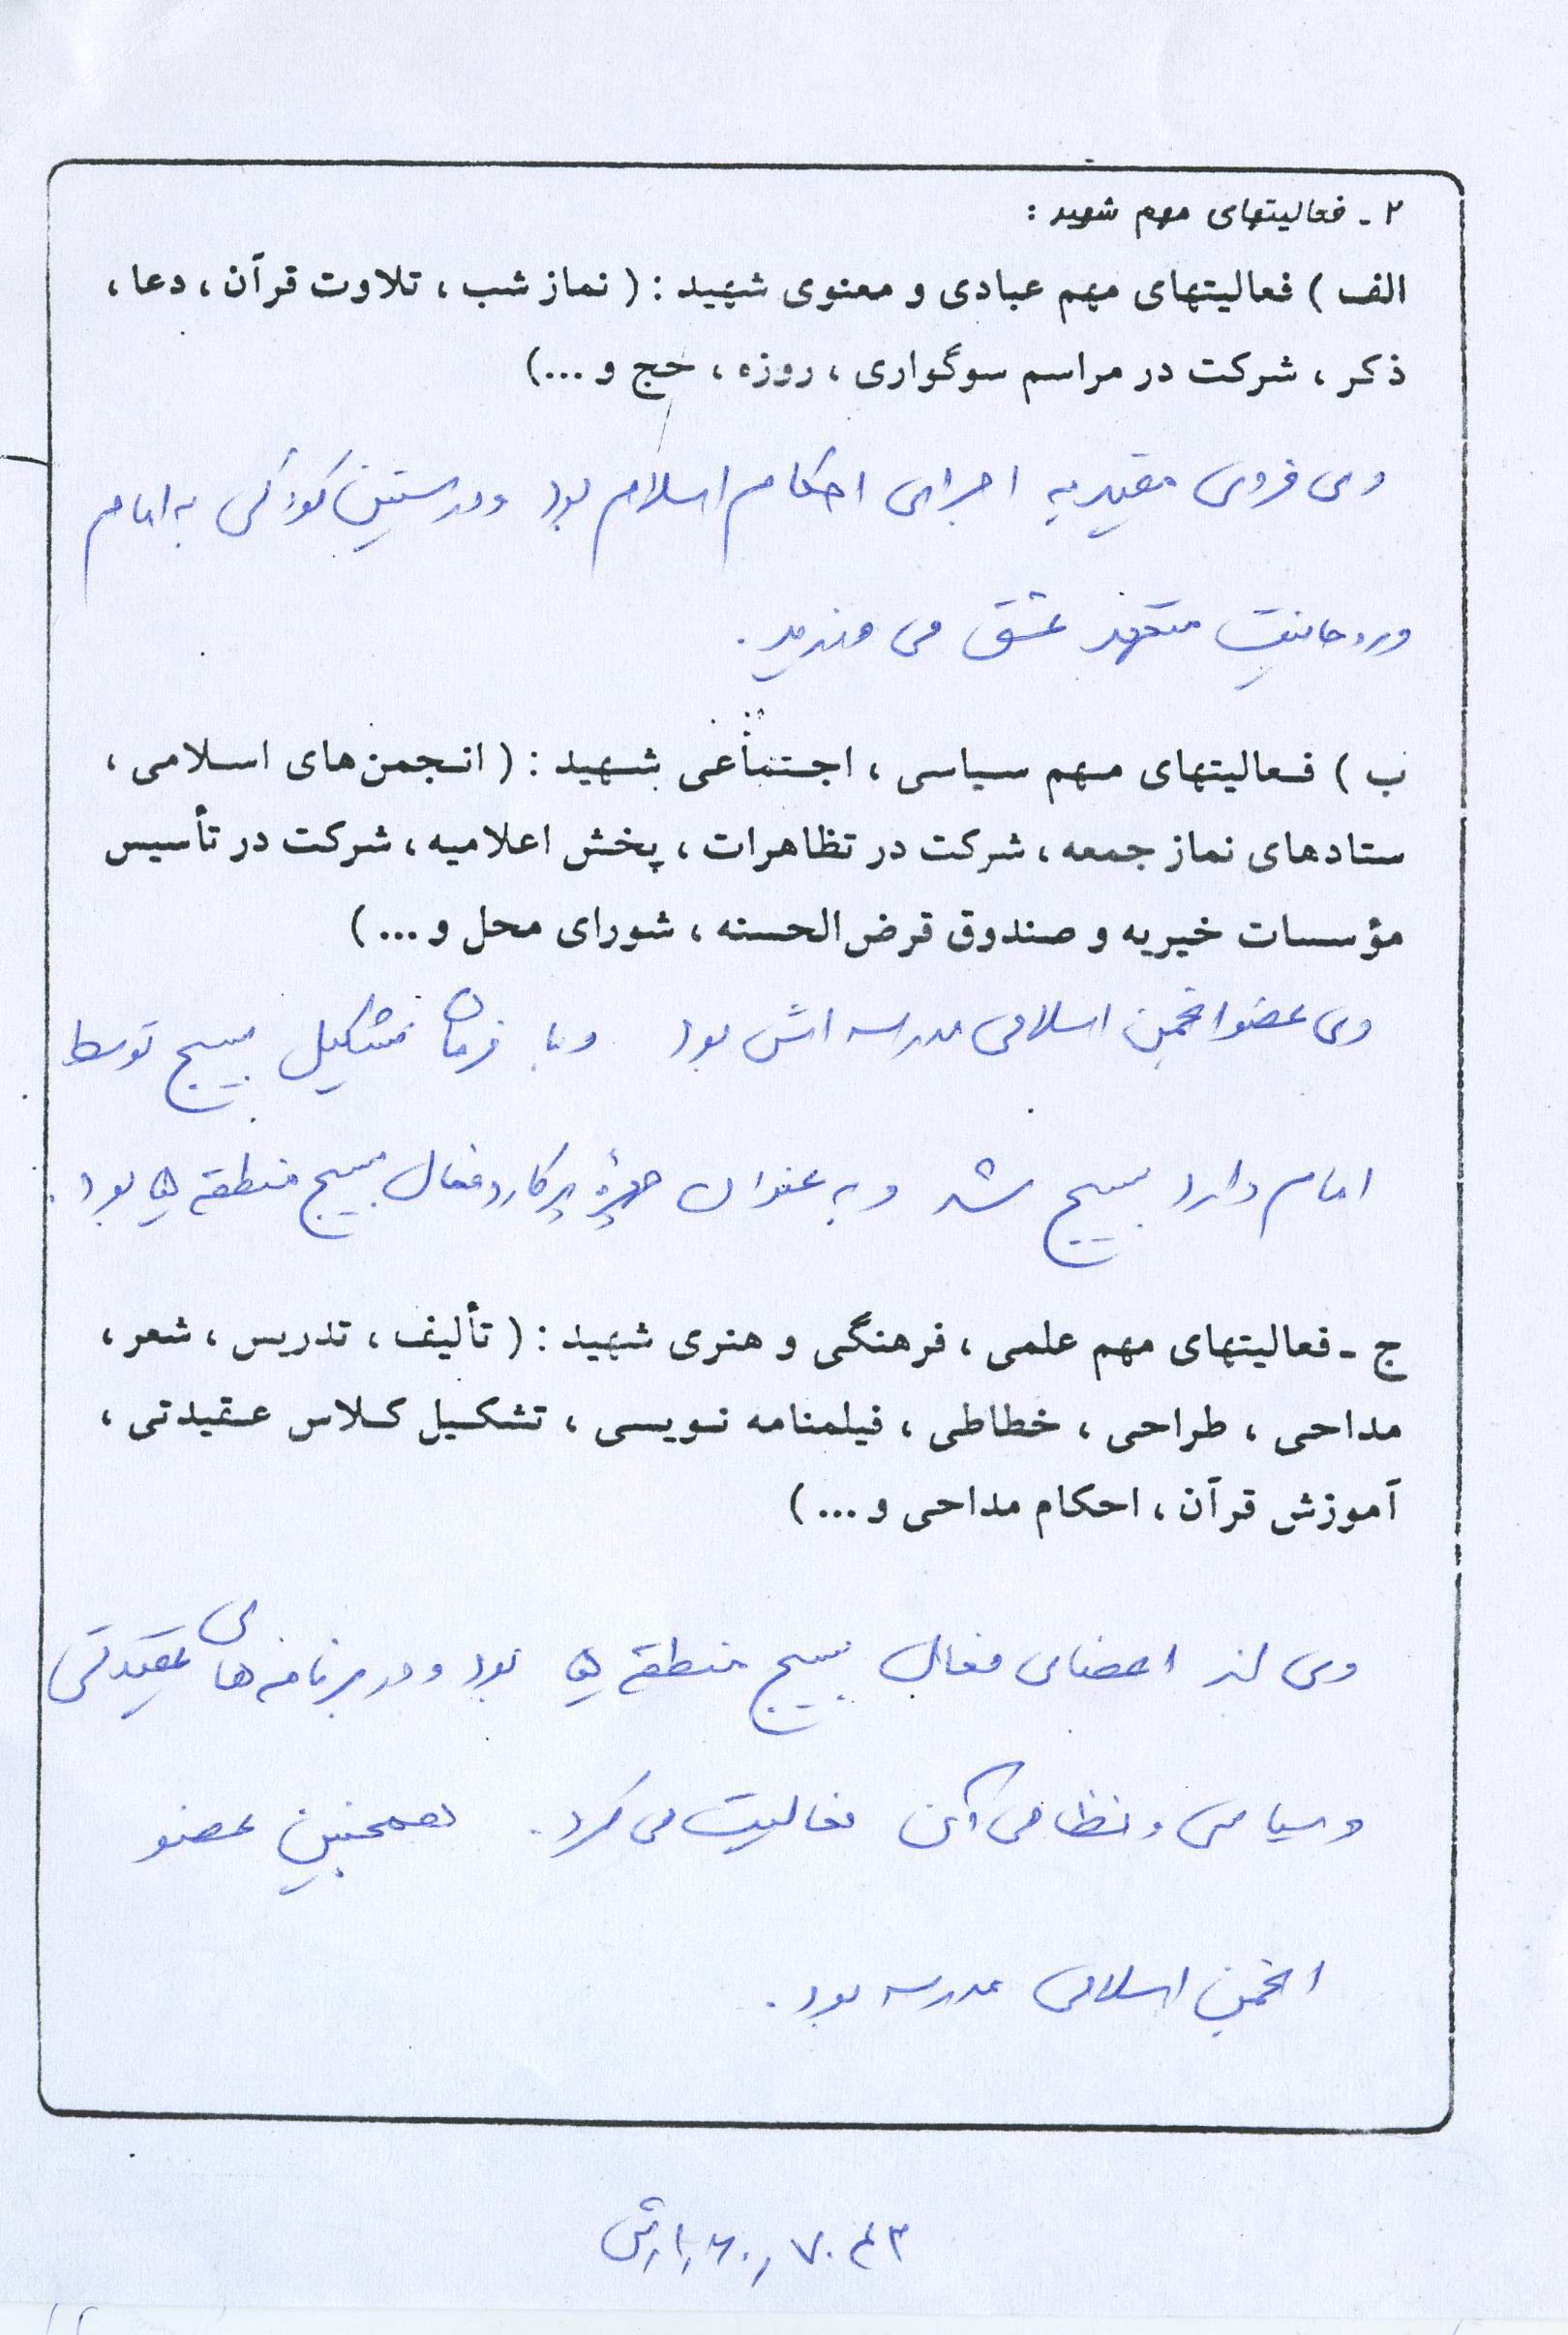 ۲ - فعالیتهای مهم شهید :
الف ) فعالیتهای مهم عبادی و معنوی شهید : ( نماز شب ، تلاوت قرآن ، دعا ،
ذکر ، شرکت در مراسم سوگواری ، روزه ، حج و ...)
وی فردی مقید به اجرای احکام اسلام بود و در سنین کودکی به امام
و روحانیت متعهد عشق می ورزید .
ب ) فعالیتهای مهم سیاسی ، اجتماعی شهید : ( انجمن‌های اسلامی ،
ستادهای نماز جمعه ، شرکت در تظاهرات ، پخش اعلامیه ، شرکت در تأسیس
مؤسسات خیریه و صندوق قرض‌الحسنه ، شورای محل و ... )
وی عضو انجمن اسلامی مدرسه اش بود و با فرمان تشکیل بسیج توسط
امام وارد بسیج شد و به عنوان چهرهٔ پرکار و فعال بسیج منطقه ۵ بود .
ج - فعالیتهای مهم علمی ، فرهنگی و هنری شهید : ( تألیف ، تدریس ، شعر ،
مداحی ، طراحی ، خطاطی ، فیلمنامه نویسی ، تشکیل کلاس عقیدتی ،
آموزش قرآن ، احکام مداحی و ... )
وی از اعضای فعال بسیج منطقه ۵ بود و در برنامه های عقیدتی
و سیاسی و نظامی آن فعالیت می کرد . همچنین عضو
انجمن اسلامی مدرسه بود .